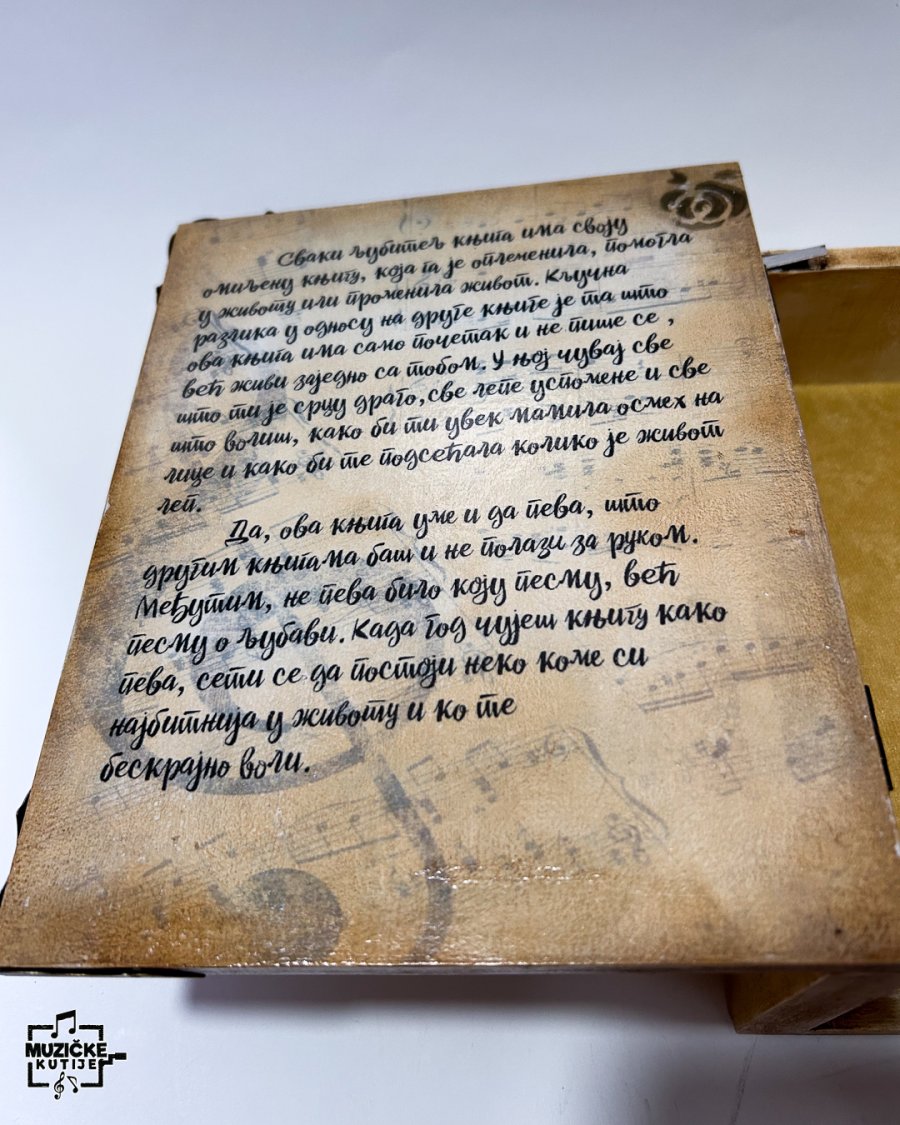 Сваки љубитељ књига има своју
омиљену књигу, која га је оплеменила, помогла
у животу или променила живот. Кључна
разлика у односу на друге књиге је та што
ова књига има само почетак и не пише се ,
већ живи заједно са тобом. У њој чувај све
што ти је срцу драго, све лепе успомене и све
што волиш, како би ти увек мамила осмех на
лице и како би те подсећала колико је живот
леп.
Да, ова књига уме и да пева, што
другим књигама баш и не полази за руком.
Међутим, не пева било коју песму, већ
песму о љубави. Када год чујеш књигу како
пева, сети се да постоји неко коме си
најбитнија у животу и ко те
бескрајно воли.
MUZIČKE
KUTIJE